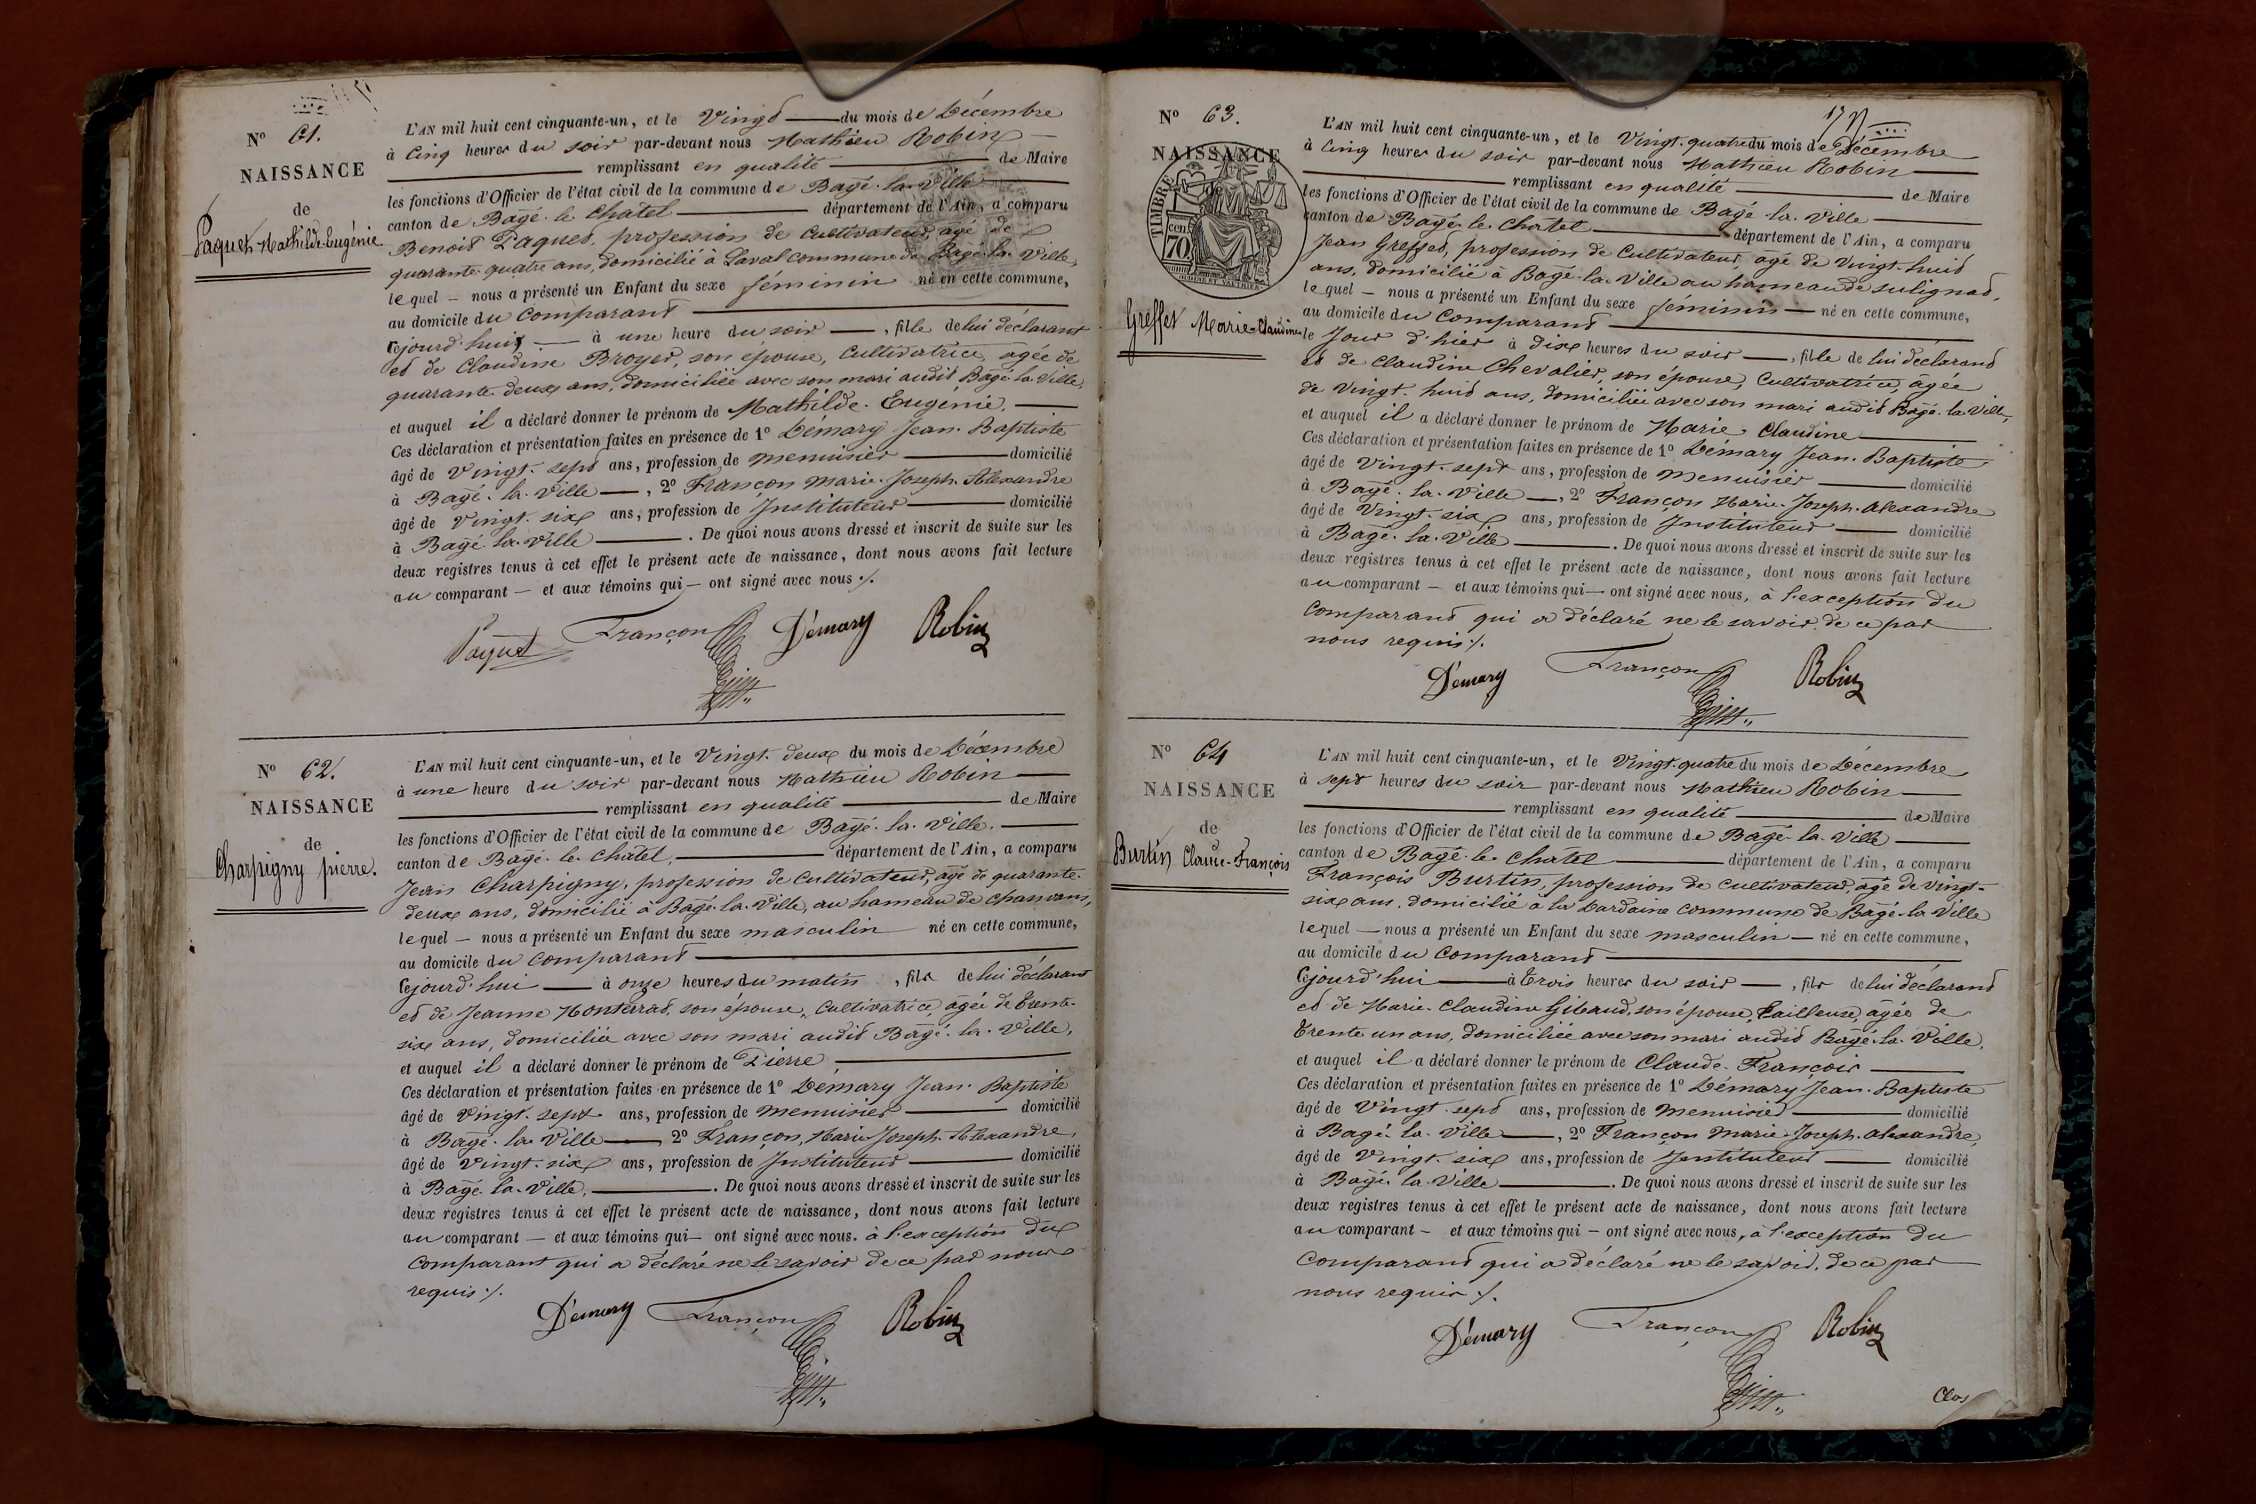 N° 61.
NAISSANCE
de
Paquet Mathilde Eugénie
L'AN mil huit cent cinquante-un, et le Vingt du mois de Décembre
à Cinq heures du soir par-devant nous Mathieu Robin
remplissant en qualité de Maire
les fonctions d'Officier de l'état civil de la commune de Bagé-la-Ville
canton de Bagé-le-Châtel département de l'Ain, a comparu
Benoit Paquet, profession de Cultivateur, âgé de
quarante-quatre ans, domicilié à Laval commune de Bagé-la-Ville,
lequel nous a présenté un Enfant du sexe féminin né en cette commune,
au domicile du Comparant
Cejourd'hui à une heure du soir, fille de lui déclarant
et de Claudine Broyer, son épouse, Cultivatrice, âgée de
quarante-deux ans, domiciliée avec son mari audit Bagé-la-Ville,
et auquel il a déclaré donner le prénom de Mathilde-Eugénie.
Ces déclaration et présentation faites en présence de 1° Démary Jean-Baptiste
âgé de Vingt-sept ans, profession de menuisier domicilié
à Bagé-la-Ville, 2° Françon Marie-Joseph-Alexandre
âgé de Vingt-six ans, profession de Instituteur domicilié
à Bagé-la-Ville. De quoi nous avons dressé et inscrit de suite sur les
deux registres tenus à cet effet le présent acte de naissance, dont nous avons fait lecture
au comparant et aux témoins qui ont signé avec nous ./.
Paquet Françon Démary Robin
N° 62.
NAISSANCE
de
Charpigny pierre.
L'AN mil huit cent cinquante-un, et le Vingt-deux du mois de Décembre
à une heure du soir par-devant nous Mathieu Robin
remplissant en qualité de Maire
les fonctions d'Officier de l'état civil de la commune de Bagé-la-Ville.
canton de Bagé-le-Châtel, département de l'Ain, a comparu
Jean Charpigny, profession de Cultivateur, âgé de quarante-
deux ans, domicilié à Bagé-la-Ville, au hameau de
lequel nous a présenté un Enfant du sexe masculin né en cette commune,
au domicile du Comparant
Cejourd'hui à onze heures du matin, fils de lui déclarant
et de Jeanne Monterrat, son épouse, Cultivatrice, âgée de trente-
six ans, domiciliée avec son mari audit Bagé-la-Ville,
et auquel il a déclaré donner le prénom de Pierre
Ces déclaration et présentation faites en présence de 1° Démary Jean-Baptiste
âgé de Vingt-sept ans, profession de menuisier domicilié
à Bagé-la-Ville 2° Françon, Marie-Joseph-Alexandre,
âgé de Vingt-six ans, profession de Instituteur domicilié
à Bagé-la-Ville. De quoi nous avons dressé et inscrit de suite sur les
deux registres tenus à cet effet le présent acte de naissance, dont nous avons fait lecture
au comparant et aux témoins qui ont signé avec nous. à l'exception du
Comparant qui a déclaré ne le savoir de ce par nous
requis ./.
Démary Françon Robin
N° 63.
NAISSANCE
TIMBRE
70
Greffet Marie-Claudine
L'AN mil huit cent cinquante-un, et le Vingt-quatre du mois de Décembre
à Cinq heures du soir par-devant nous Mathieu Robin
remplissant en qualité de Maire
les fonctions d'Officier de l'état civil de la commune de Bagé-la-Ville
canton de Bagé-le-Châtel département de l'Ain, a comparu
Jean Greffet, profession de Cultivateur, âgé de Vingt-huit
ans, domicilié à Bagé-la-Ville au hameau de sulignat,
lequel nous a présenté un Enfant du sexe féminin né en cette commune,
au domicile du Comparant
le Jour d'hier à dix heures du soir, fille de lui déclarant
et de Claudine Chevalier, son épouse, Cultivatrice, âgée
de Vingt-huit ans, domiciliée avec son mari audit Bagé-la-Ville,
et auquel il a déclaré donner le prénom de Marie-Claudine
Ces déclaration et présentation faites en présence de 1° Démary Jean-Baptiste
âgé de Vingt-sept ans, profession de Menuisier domicilié
à Bagé-la-Ville, 2° Françon Marie-Joseph-Alexandre
âgé de Vingt-six ans, profession de Instituteur domicilié
à Bagé-la-Ville. De quoi nous avons dressé et inscrit de suite sur les
deux registres tenus à cet effet le présent acte de naissance, dont nous avons fait lecture
au comparant et aux témoins qui ont signé avec nous, à l'exception du
Comparant qui a déclaré ne le savoir de ce par
nous requis ./.
Démary Françon Robin
N° 64
NAISSANCE
de
Burtin Claude-François
L'AN mil huit cent cinquante-un, et le Vingt-quatre du mois de Décembre
à sept heures du soir par-devant nous Mathieu Robin
remplissant en qualité de Maire
les fonctions d'Officier de l'état civil de la commune de Bagé-la-Ville
canton de Bagé-le-Châtel département de l'Ain, a comparu
François Burtin, profession de Cultivateur, âgé de vingt-
six ans, domicilié à la Dardaine commune de Bagé-la-Ville
lequel nous a présenté un Enfant du sexe masculin né en cette commune,
au domicile du Comparant
Cejourd'hui à trois heures du soir, fils de lui déclarant
et de Marie-Claudine Giband, son épouse, tailleuse, âgée de
trente un ans, domiciliée avec son mari audit Bagé-la-Ville,
et auquel il a déclaré donner le prénom de Claude-François
Ces déclaration et présentation faites en présence de 1° Démary Jean-Baptiste
âgé de Vingt-sept ans, profession de Menuisier domicilié
à Bagé-la-Ville, 2° Françon Marie-Joseph-Alexandre,
âgé de Vingt-six ans, profession de Instituteur domicilié
à Bagé-la-Ville. De quoi nous avons dressé et inscrit de suite sur les
deux registres tenus à cet effet le présent acte de naissance, dont nous avons fait lecture
au comparant et aux témoins qui ont signé avec nous, à l'exception du
Comparant qui a déclaré ne le savoir, de ce par
nous requis ./.
Démary Françon Robin
Clos